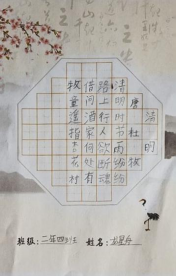 清明
唐 杜牧
清明时节雨纷纷
路上行人欲断魂
借问酒家何处有
牧童遥指杏花村
班级:二年四班 姓名: